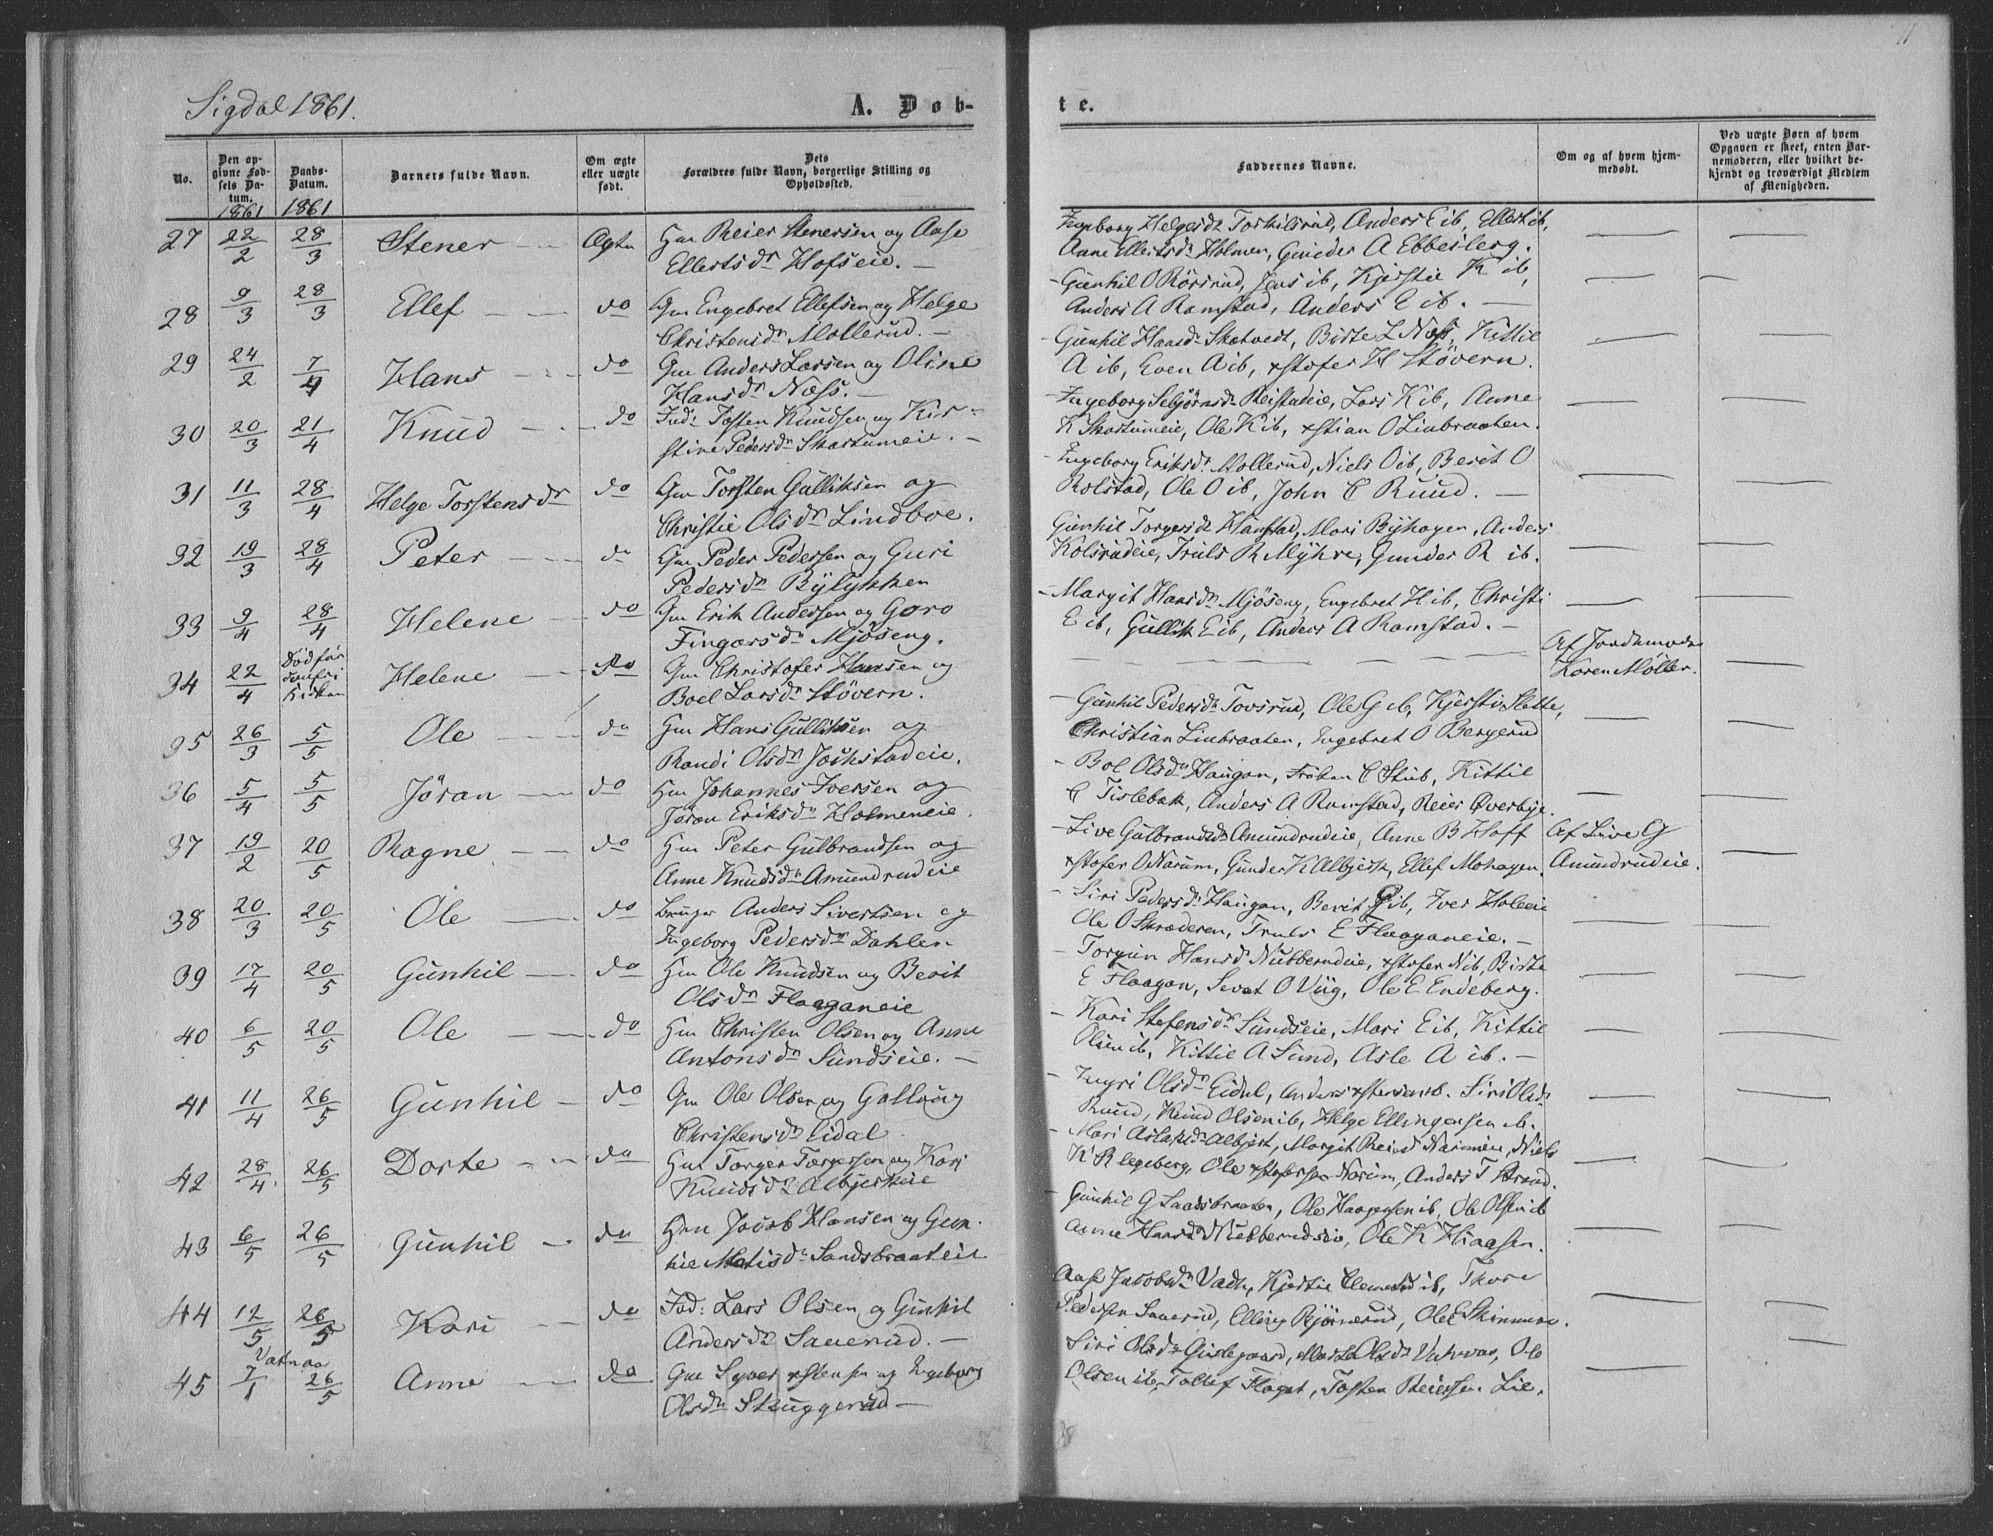 11
Sigdal 1861.
A. Døb-
te.
No.
Den op-
givne Fød-
sels Da-
tum.
1861
Daabs-
Datum.
1861
Barnets fulde Navn.
Om ægte
eller uægte
født.
Dets
Forældres fulde Navn, borgerlige Stilling og
Opholdssted.
Faddernes Navne.
Om og af hvem hjem-
medøbt.
Ved uægte Børn af hvem
Opgaven er skeet, enten Bar-
nemoderen, eller hvilket be-
kjendt og troværdigt Medlem
af Menigheden.
27 22/2 28/3 Stener Ægte Hm Reier Stenersen og Aase
Ellertsdr Hofseie.
Ingeborg Helgesdr Torkilsrud, Anders E ib, Ellert ib,
Anne Ellertsdr Holmen, Gunder A Ebbesberg.
28 9/3 28/3 Ellef do Gm Engebret Ellefsen og Helge
Christensdr Mollerud.
Gunhil O Rörsrud, Jens ib, Kjerstie K ib,
Anders A Ramstad, Anders E ib.
29 24/2 7/4 Hans do Gm Anders Larsen og Oline
Hansdr Næss.
Gunhil Hansdr Skotvedt, Birte L Næss, Kittil
A ib, Even A ib, xstofer H Støvern.
30 20/3 21/4 Knud do Ind: Tosten Knudsen og Kir-
stine Pedersdr Skartumeie.
Ingeborg Sebjörnsdr Reistadeie, Lars K ib, Anne
K Skartumeie, Ole K ib, xstian O Linbraaten.
31 11/3 28/4 Helge Torstensdr do Gm Torsten Gulliksen og
Christie Olsdr Lindboe.
Ingeborg Eriksdr Mollerud, Niels O ib, Berit O
Rolstad, Ole O ib, John C Ruud.
32 19/3 28/4 Peter do Gm Peder Pedersen og Guri
Pedersdr Bylykken
Gunhil Torgersdr Hanstad, Mari Byhagen, Anders
Kolsrudeie, Truls R Myhre, Gunder R ib.
33 9/4 28/4 Helene do Gm Erik Andersen og Goro
Fingarsdr Mjöseng.
Margit Hansdr Mjöseng, Engebret H ib, Christi
E ib, Gullik E ib, Anders A Ramstad.
34 22/4 Död før
Kirken Helene do Gm Christofer Hansen og
Boel Larsdr Støvern.
Af Jordemoder
Karen Møller.
35 26/3 5/5 Ole do Hm Hans Gulliksen og
Randi Olsdr Jockstadeie.
Gunhil Pedersdr Tovsrud, Ole G ib, Kjersti Slette,
Christian Linbraaten, Ingebret O Bergerud
36 5/4 5/5 Jöran do Hm Johannes Iversen og
Jöran Eriksdr Holmeneie.
Bol Olsdr Haugan, Fröben C Stub, Kittil
C Tislebak, Anders A Ramstad, Reier Øverbye.
37 19/2 20/5 Ragne do Hm Peter Gulbrandsen og
Anne Knudsdr Amundrudeie
Live Gulbrandsdr Amundrudeie, Anne B Hoff
xstofer O Narum, Gunder K Albjersk, Ellef Mohagen.
Af Live G
Amundrudeie.
38 20/3 20/5 Ole do Bruger Anders Sivertsen og
Ingeborg Pedersdr Dahlen
Siri Pedersdr Haugan, Berit P ib, Iver Holeeie
Ole O Skræderen, Truls E Flaaganeie.
39 17/4 20/5 Gunhil do Hm Ole Knudsen og Berit
Olsdr Flaaganeie
Torgun Hansdr Nubberudeie, xstofer N ib, Birte
E Flaagan, Sevat O Viig, Ole E Endeberg.
40 6/5 20/5 Ole do Hm Christen Olsen og Anne
Antonsdr Sundseie.
Kari Stefensdr Sundseie, Mari E ib, Kittil
Olsen ib, Kittil A Sund, Asle A ib.
41 11/4 26/5 Gunhil do Gm Ole Olsen og Gollaug
Christensdr Eidal
Ingri Olsdr Eidal, Anders xstensen ib. Siri Olsdr
Ruud, Knud Olsen ib, Helge Ellingsen ib.
42 28/4 26/5 Dorte do Hm Torger Torgersen og Kari
Knudsdr Albjerskeie
Mari Aslaksdr Albjersk, Margit Narumeie, Niels
K R legeberg, Ole xstofersen Narum, Anders T Strand.
43 6/5 26/5 Gunhil do Hm Jacob Hansen og Gun-
hil Matisdr Sandsbraateie
Gunhil G Saadsbraaten, Ole Haagensen ib, Ole Olsen ib
Anne Hansdr Nubberudeie, Ole K Haasen.
44 12/5 26/5 Kari do Ind: Lars Olsen og Gunhil
Andersdr Sauerud.
Aase Jacobsdr Vadn, Kjerstie Clemetsd ib, Thore
Pedersen Sauerud, Elling Bjørnerud, Ole E Skinnnes.
45 Vatnaas
7/1 26/5 Anne do Gm Syver xstensen og Ingeborg
Olsdr Skuggerud
Siri Olsdr Gudegaard, Marte Olsdr Vatnaas, Ole
Olsen ib, Tollef Flaget, Tosten Reiersen Lie.